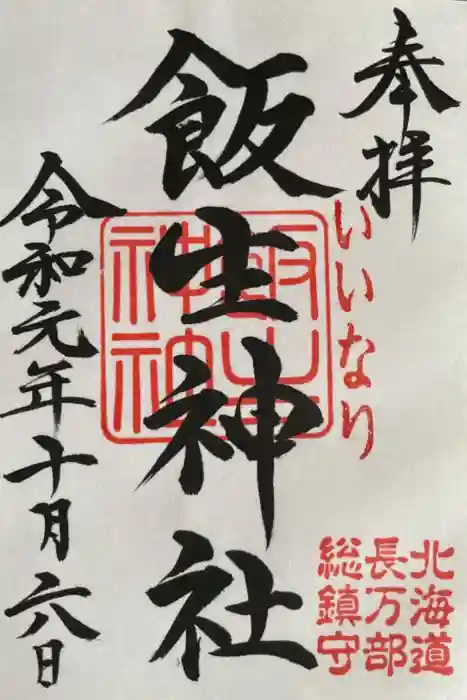 奉拝
いいなり
飯生神社
飯生
神社
北海道
長万部
総鎮守
令和元年十月六日